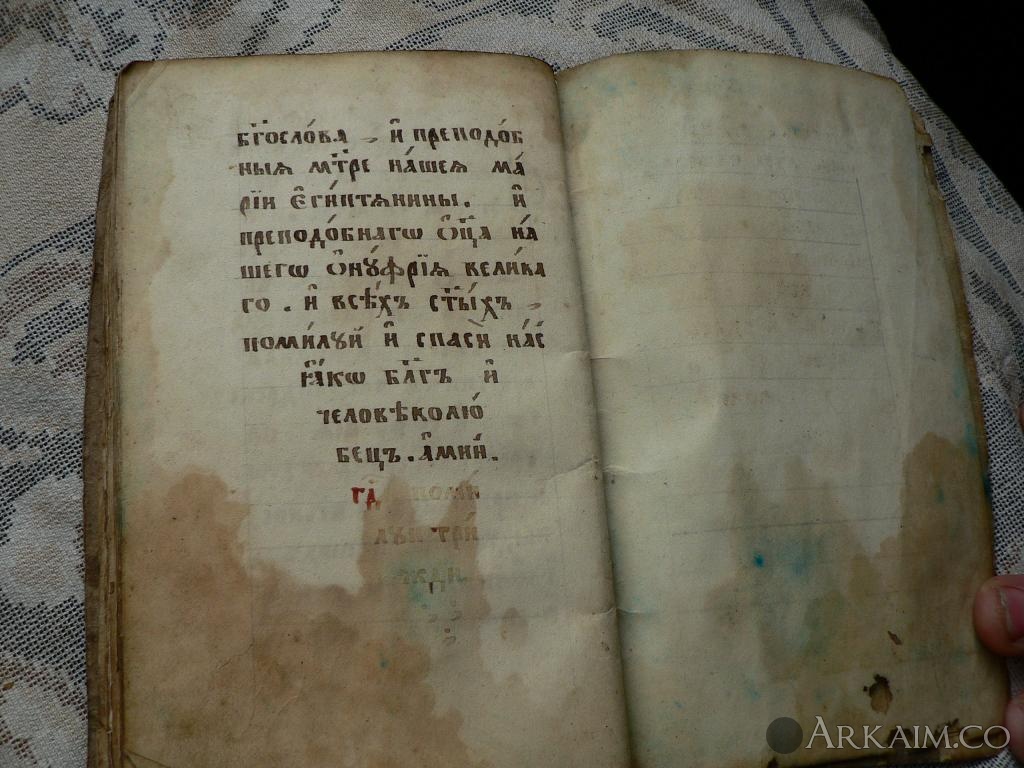 бг҃осло́ва , и҆ преподо́б
ныѧ мт҃ре на́шеѧ ма
рі́и є҆ги́птѧнины. и҆
преподо́бнагѡ ѻ҆ц҃а на́
шегѡ ѻ҆нꙋ́фрїѧ вели́ка
го. и҆ всѣ́хъ ст҃ы́хъ ,
поми́лꙋй и҆ спаси́ на́с
ꙗ҆́кѡ бл҃гъ и҆
человѣколю́
бецъ. а҆ми́н.
гд҃ поми́
лꙋи три́
жди
ARKAIM.CO